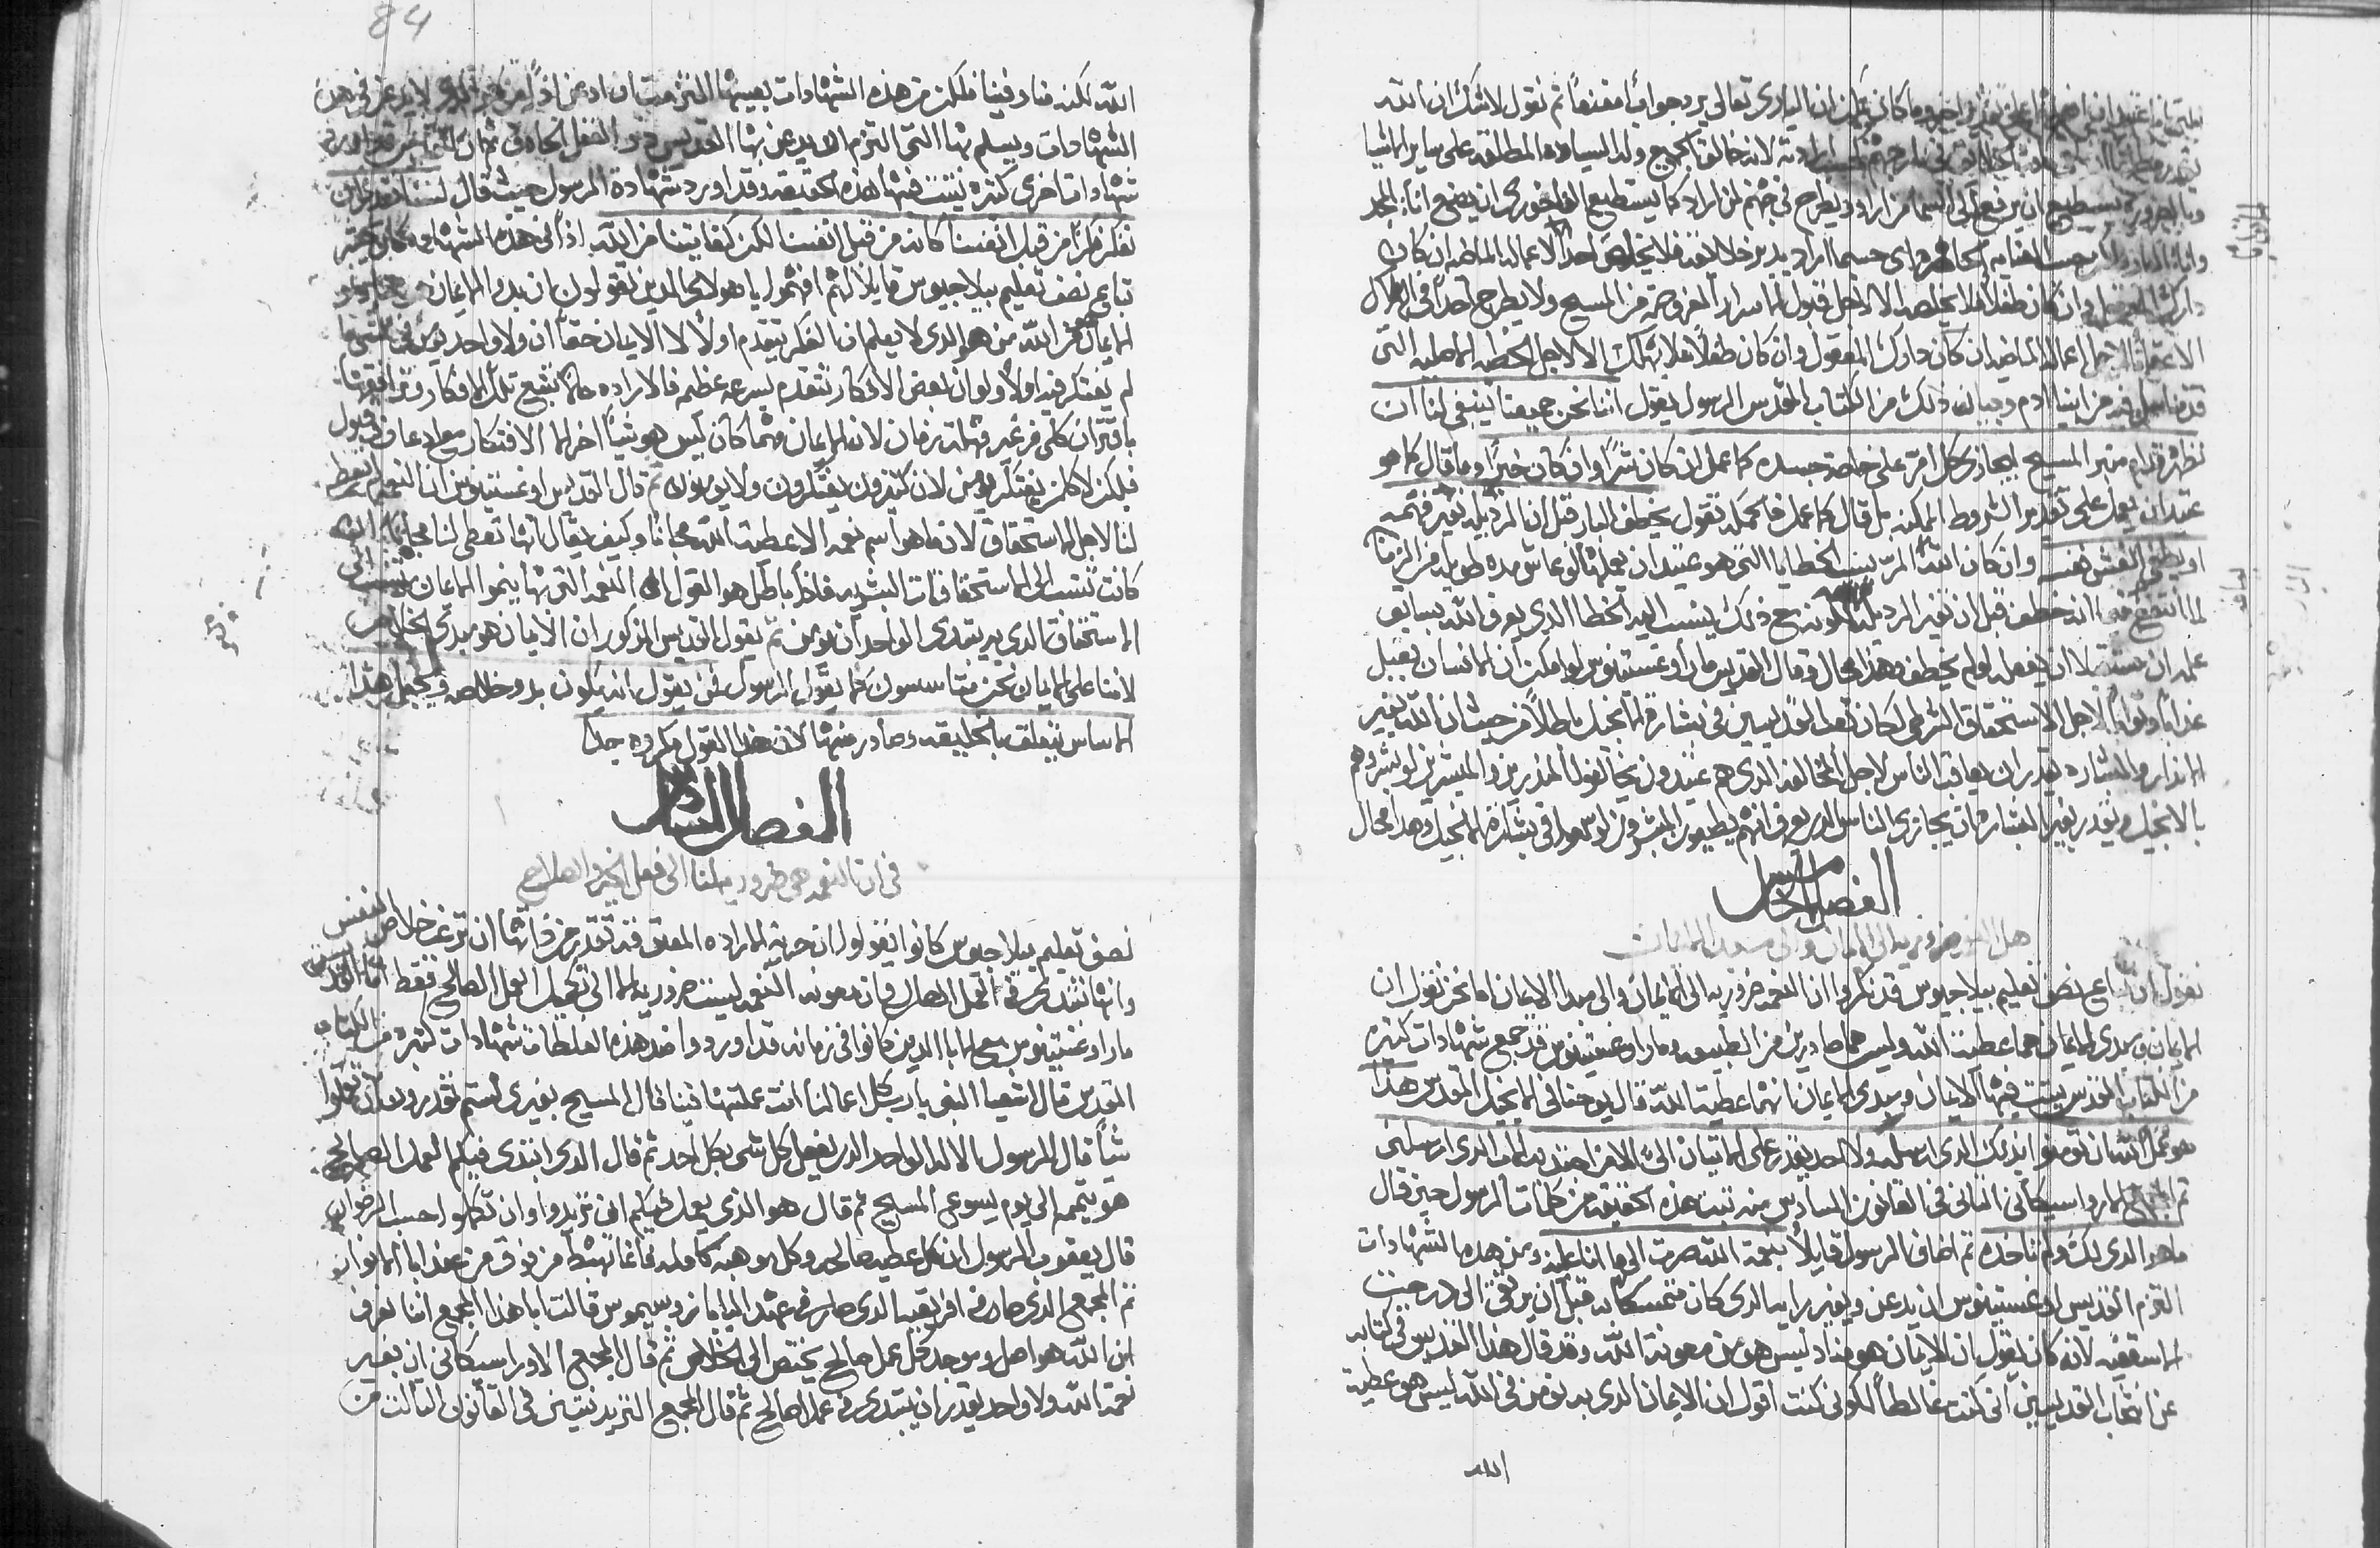 ثم نقول لا شك ان الله
لانه خالق الجميع وله السياده المطلقه على ساير الاشيا
يستطيع ان يرفع الى السما من اراد ويطرح في جهنم لمن اراد كما يستطيع الفاخوري ان يصنع انأ المجد
فلا يخلص احداً الا لاعماله الماضيه ان كان
وان كان طفلاً فلا يخلصه الا لاجل قبول الاسرار من المسيح ولا يطرح احداً في الهلاك
الا لاجل اعماله الماضيه ان كان دارك المعقول وان كان طفلاً فلا يهلك الا لاجل الخطيه الاصليه التي
من ابينا ادم وبيان ذلك من الكتاب المقدس الرسول يقول اننا نحن جميعنا ينبغي لنا ان
نظهر قدام منبر المسيح ليجازي كل امرء على خاصة جسده كما عمل ان كان شرًا وان كان خيرًا وما قال كما هو
عتيد ان يعمل على تقدير الشروط الممكنه بل قال كما عمل فالحكمه تقول يخطف البار قبل ان الرذيله تغير فهمه
وان كان الله ينسب الخطايا التي هو عتيد ان يعملها لو عاش مده طويله من الزمان
لما انتفع انه خطف قبل ان تغير الرذيله لكونه مع ذلك ينسب اليه الخطا الذي يعرف الله بسابق
علمه ان يفعله لو لم يخطف وهذا محال وقال القديس مار اوغستينوس لو امكن ان الانسان يقبل
عذاباً او ثواباً لاجل الاستحقاق الشرطي لكان تعب القديسين في بشارة الانجيل باطلاً من حيث ان الله بغير
الانذار والبشاره يقدر ان يعاقب الناس لاجل المخالفه الذي هم عتيدون يخالفوا المنذرين والمبشرين لو بشروهم
بالانجيل ويقدر بغير البشاره ان يجازي الناس الذي يعرف انهم يطيعون المبشرين لو سمعوا في بشارة الانجيل وهذا محال
الفصل الخامس
هل النعمه ضروريه الى الايمان والى مبدا الايمان
نقول ان تباع نصف تعليم بيلاجيوس قد نكروا ان النعمه ضروريه الى الايمان والى مبدا الايمان اما نحن نقول ان
الايمان ومبدى الايمان هما عطية الله وليس هما صادرين من الطبيعه ومار اوغستينوس قد جمع شهادات كثيره
من الكتاب المقدس يثبت فيها الايمان ومبدى الايمان انهما عطية الله قال يوحنا في الانجيل المقدس هذا
هو عمل الله ان تومنوا بذلك الذي ارسله ولا احد يقدر على الاتيان اليّ الا من اجتذبه الاب الذي ارسلني
ثم المجمع الاراوسيكاني الثاني في القانون السادس منه تثبت هذه الحقيقه من كلمات الرسول حين قال
ما هو الذي لك ولم تاخذه ثم اضاف الرسول قايلاً بنعمة الله صرت الى ما انا عليه ومن هذه الشهادات
التزم القديس اوغستينوس ان يدعن ويغير رايه الذي كان متمسكا به قبل ان يرتقي الى درجت
الاسقفيه لانه كان يقول ان الايمان هو منا وليس هو من معونة الله وقد قال هذا القديس في كتابه
عن انتخاب القديسين اني كنت غالطاً لكوني كنت اقول ان الايمان الذي به نومن في الله ليس هو عطية
الله
84
الله لكنه منا وفينا فلكن من هذه الشهادات بعينها التزمت ان ادعن
الشهادات ويسلم بها التي التزم ان يدعن بها القديس
شهادات اخرى كثيره يثبت فيها هذه الحقيقه وقد اورد شهادة الرسول حيث قال لسنا نقدر ان
نفكر فكرًا من قبل انفسنا كانه من قبل انفسنا لكن كفايتنا من الله اذاً في هذه الشهاده كان يحتج
تباع نصف تعليم بيلاجيوس قايلاً لهم افهموا يا هولاى الذين تقولون ان بدو الايمان
الايمان من الله من هو الذي لا يعلم ان الفكر يتقدم اولاً الايمان حقاً ان ولا واحد يومن في شي ما
لم يفتكر فيه اولاً ولو ان بعض الافكار تتقدم بسرعه عظيمه فالاراده حالاً تتبع تلك الافكار وترافقها
باقتران كلي من غير مهلة زمان لان الايمان مهما كان ليس هو شياً اخر الا الافتكار مع ادعان وقبول
فلكن لا كلمن يفتكر يومن لان كثيرون يفتكرون ولا يومنون ثم قال القديس اوغستينوس ان النعمه لم تعطى
لنا لاجل الاستحقاق لانه ما هو اسم نعمه الا عطية الله مجاناً وكيف يقال انها تعطى لنا مجاناً اذا
كانت تنسب الى الاستحقاقات البشريه فاذاً باطل هو القول ان النعمه التي بها ينموا الايمان تنسب الى
الاستحقاق الذي به يبتدى الواحد ان يومن ثم يقول القديس المذكور ان الايمان هو مبدى الخلاص
لاننا على الايمان نحن متاسسون كما يقول الرسول فمن يقول انه يكون بدو خلاصه ويجعل هذا
الاساس يتعلق بالخليقه وصادر منها لان هذا القول مكروه جدا
الفصل السادس
في ان النعمه هي ضروريه لنا الى فعل الخير والصلاح
نصف تعليم بيلاجيوس كانوا يقولون ان حرية الاراده المعتقه تقدر من ذاتها ان ترغب خلاص النفس
وانها تبتدى في العمل الصالح وان معونة النعمه ليست ضروريه الا الى تكميل العمل الصالح فقط اما القديس
مار اوغستينوس مع الابا الذين كانوا في زمانه قد اوردوا ضد هذه الغلطات شهادات كثيره من الكتاب
المقدس قال اشعيا النبي يا رب كل اعمالنا انت عملتها فينا قال المسيح بغيري لستم تقدروا ان تعملوا
شياً قال الرسول الاله الواحد الذي يفعل كل شي بكل احد ثم قال الذي ابتدى فيكم العمل الصالح
هو يتممه الى يوم يسوع المسيح ثم قال هو الذي يعمل فيكم ان تريدوا وان تكملوا حسب الرضوان
قال يعقوب الرسول ان كل عطيه صالحه وكل موهبه كامله فانما تهبط من فوق من عند ابا الانوار
ثم المجمع الذي صار في افريقيا الذي صار في عهد البابا زوسيموس قالت ابا هذا المجمع اننا نعرف
ان الله هو اصل وموجد كل عمل صالح يختص الى الخلاص ثم قال المجمع الاوراسيكاني ان بغير
نعمة الله ولا واحد يقدر ان يبتدى في عمل الصالح ثم قال المجمع التريدنتيني في القانون الثالث من